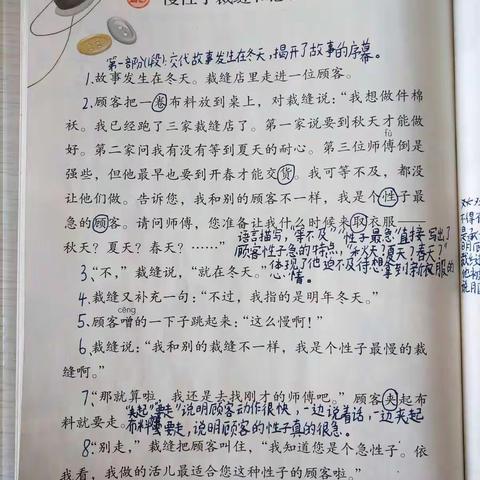 慢性子裁缝和急
第一部分(1段):交代故事发生在冬天,揭开了故事的序幕。
1.故事发生在冬天。裁缝店里走进一位顾客。
2.顾客把一卷布料放到桌上,对裁缝说:“我想做件棉
袄。我已经跑了三家裁缝店了。第一家说要到秋天才能做
fù
好。第二家问我有没有等到夏天的耐心。第三位师傅倒是
强些,但他最早也要到开春才能交货。我可等不及,都没
让他们做。告诉您,我和别的顾客不一样,我是个性子最
急的顾客。请问师傅,您准备让我什么时候来取衣服——
秋天?夏天?春天?……”
语言描写,“等不及”“性子最急”直接写出了
顾客性子急的特点,“秋天?夏天?春天?”
体现了他迫不及待想拿到新衣服的
心情。
3.“不,”裁缝说,“就在冬天。”
4.裁缝又补充一句:“不过,我指的是明年冬天。”
cēng
5.顾客噌的一下子跳起来:“这么慢啊!”
6.裁缝说:“我和别的裁缝不一样,我是个性子最慢的裁
缝啊。”
7.“那就算啦,我还是去找刚才的师傅吧。”顾客夹起布
料就要走。
“夹起”“要走”说明顾客动作很快,一边说着话,一边夹起
布料就要走,说明顾客的性子真的很急。
8.“别走,”裁缝把顾客叫住,“我知道您是个急性子。依
我看,我做的活儿最适合您这种性子的顾客啦。”